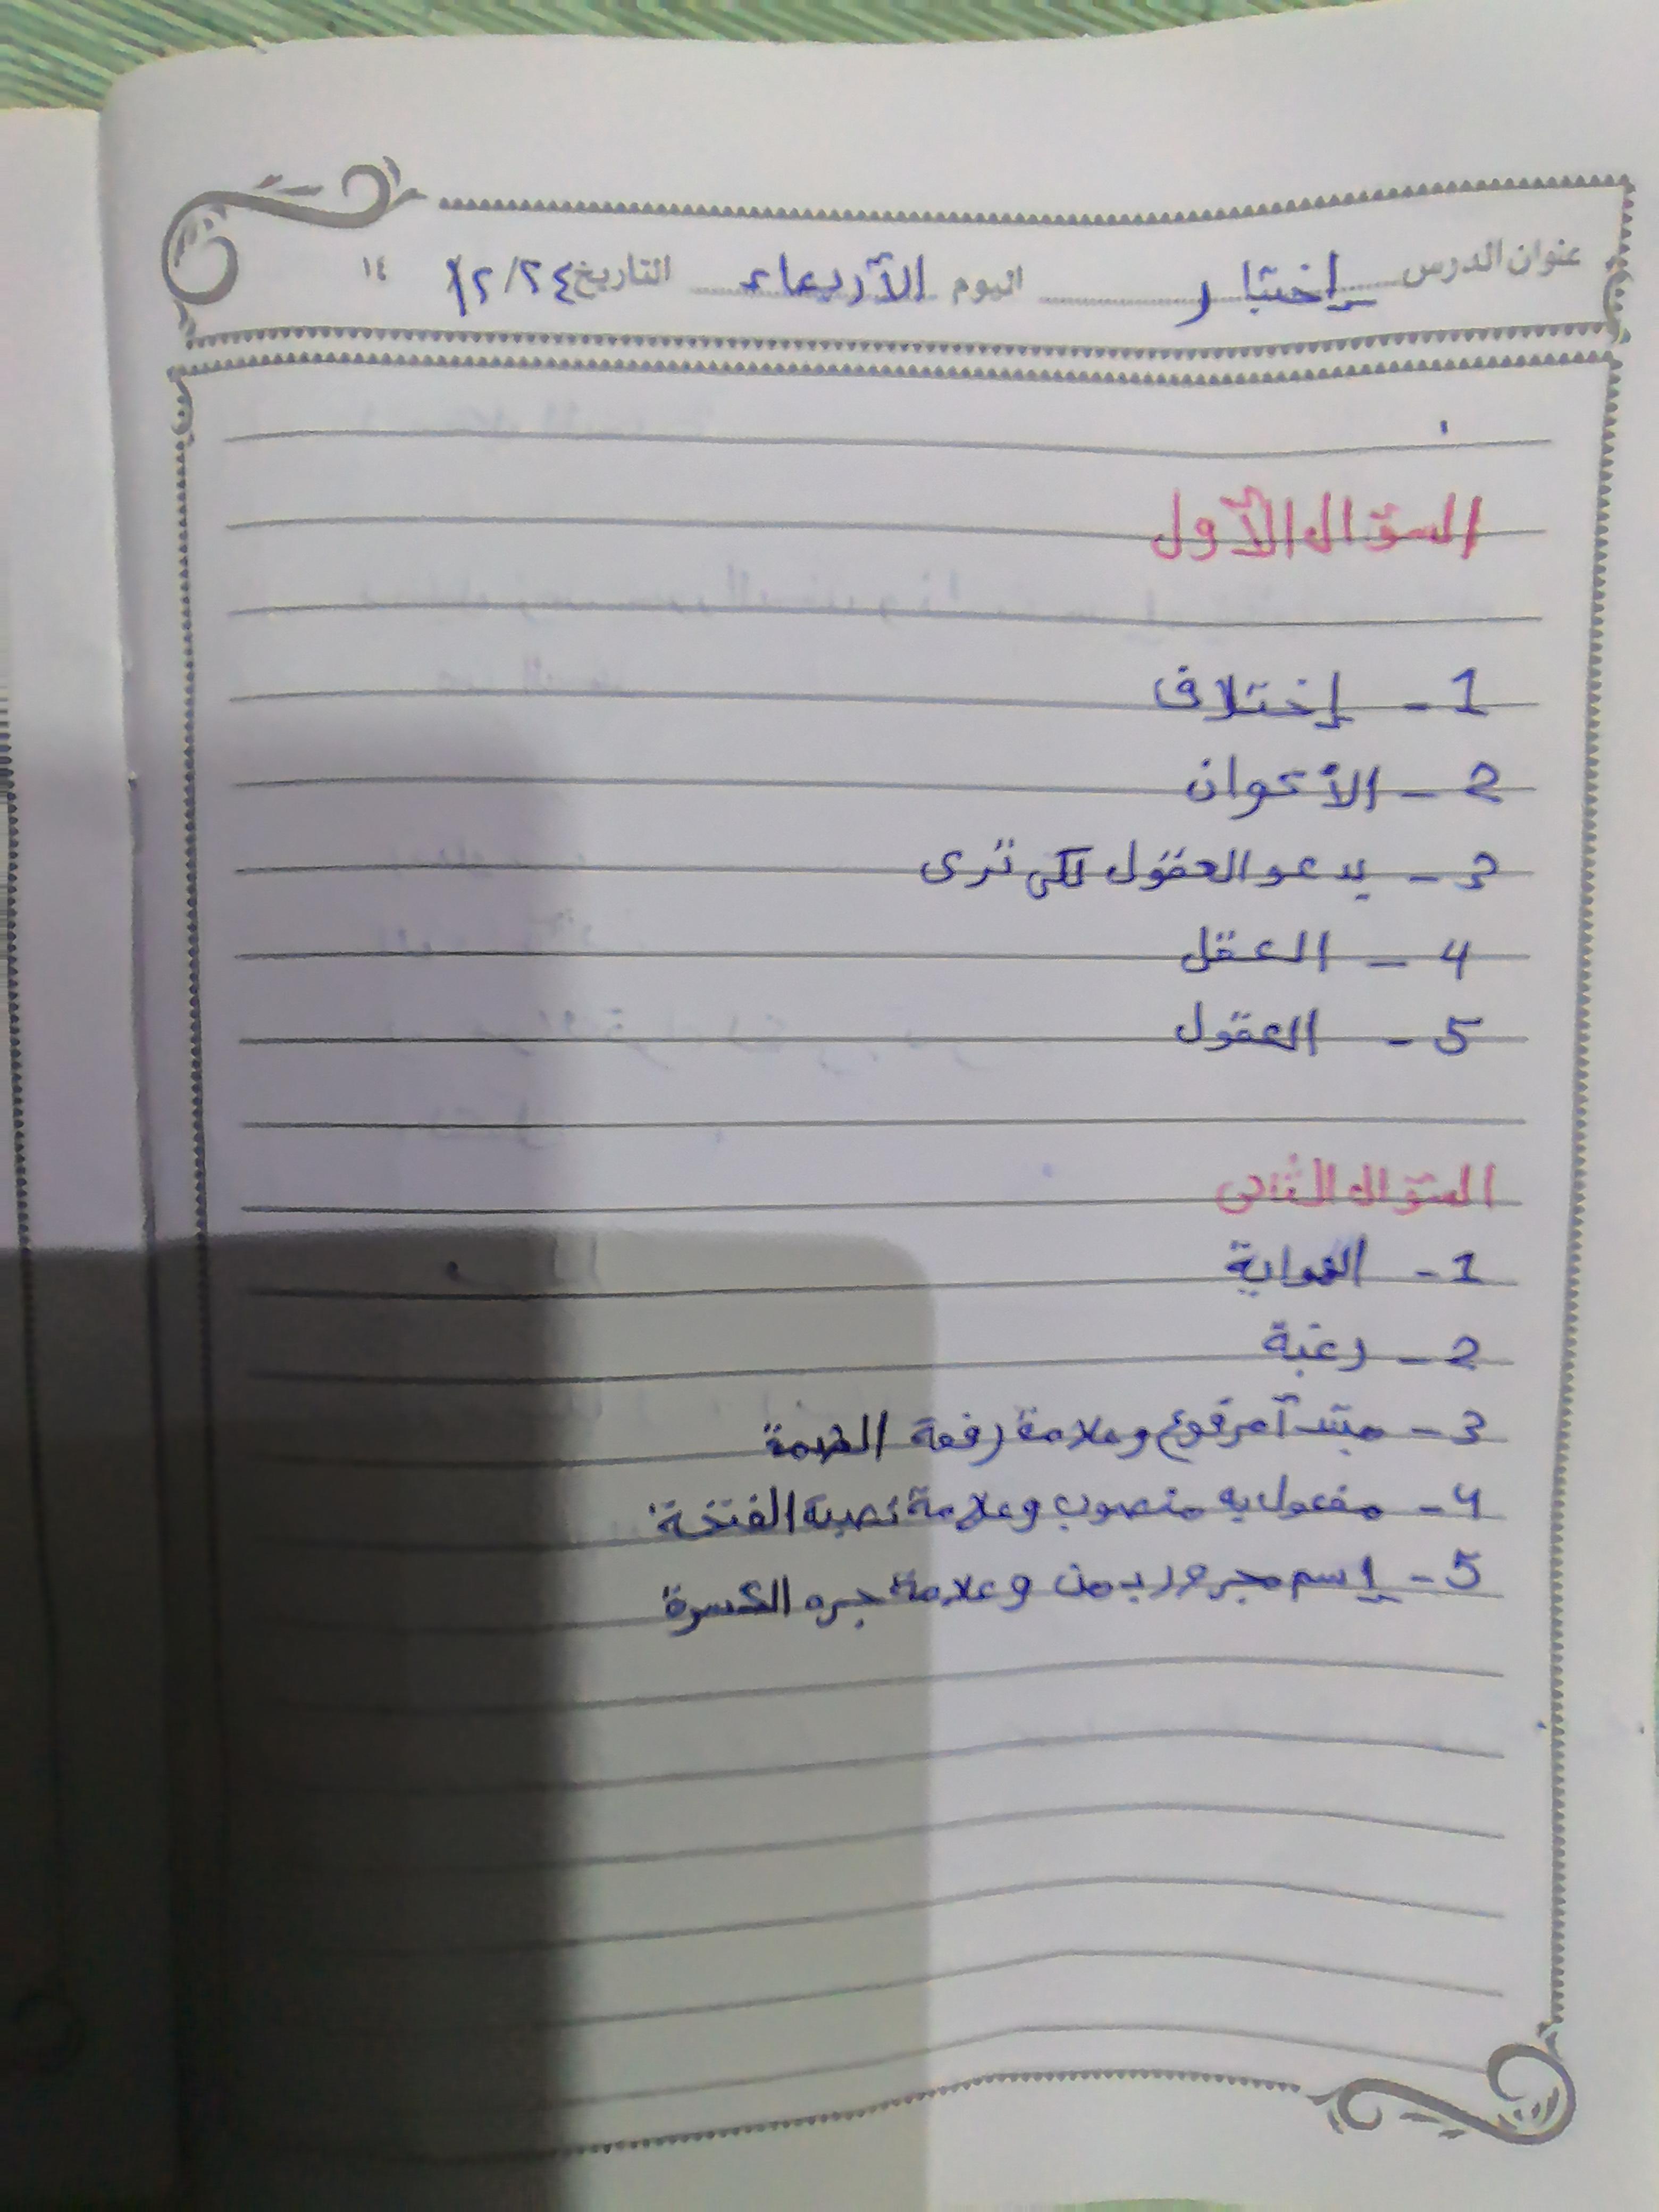 عنوان الدرس إختبار اليوم الأربعاء التاريخ ١٢/٢٤ ١٤
السؤال الأول
1 - إختلاف
2 - الأكوان
3 - يدعو العقول لكى ترى
4 - العقل
5 - العقول
السؤال الثانى
1 - الغواية
2 - رغبة
3 - مبتدآ مرفوع وعلامة رفعة الضمة
4 - مفعول به منصوب وعلامة نصبة الفتخة
5 - إسم مجرور بـ من وعلامة جره الكسرة